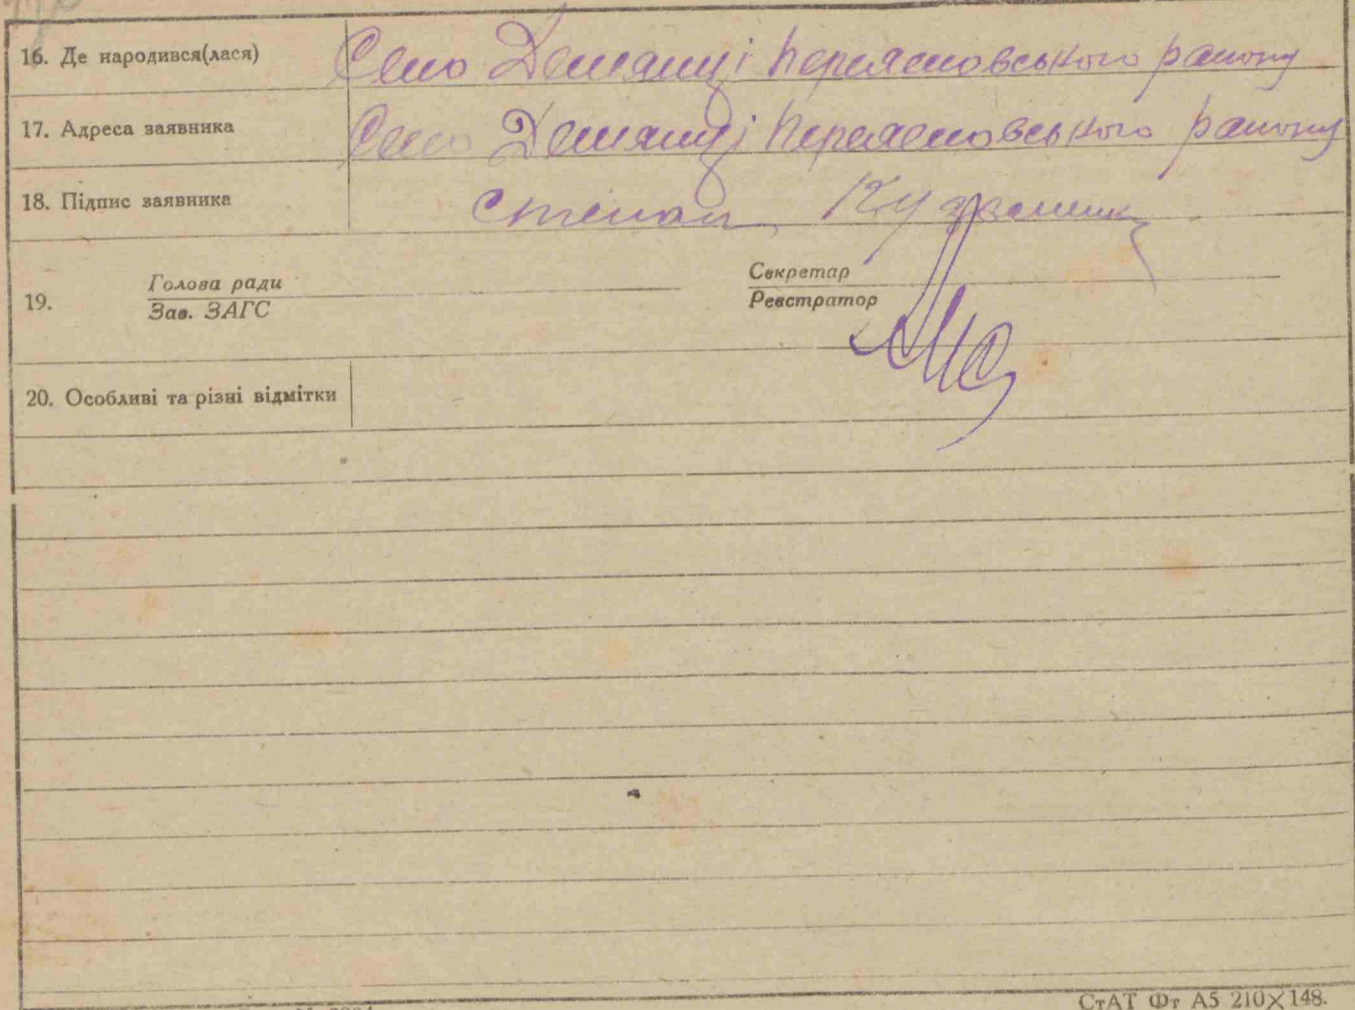 16. Де народився(лася) Село Демянці Переясловського району
17. Адреса заявника Село Демянці Переясловського району
18. Підпис заявника Степан
19. Голова ради Секретар
Зав. ЗАГС Реєстратор
20. Особливі та різні відмітки
СтАТ Фт А5 210×148.